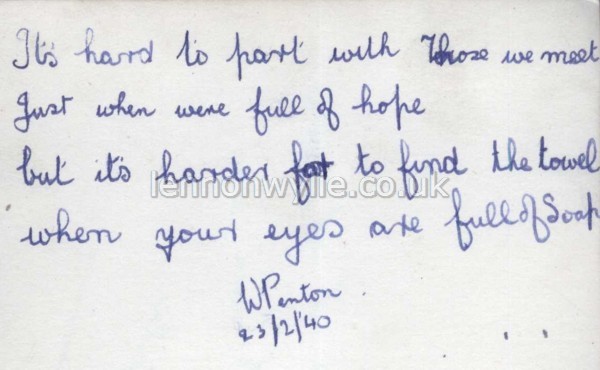 It's hard to part with those we meet
Just when were full of hope
but it's harder to find the towel
lennonwylie.co.uk
when your eyes are full of Soap
W Penton
23/2/'40